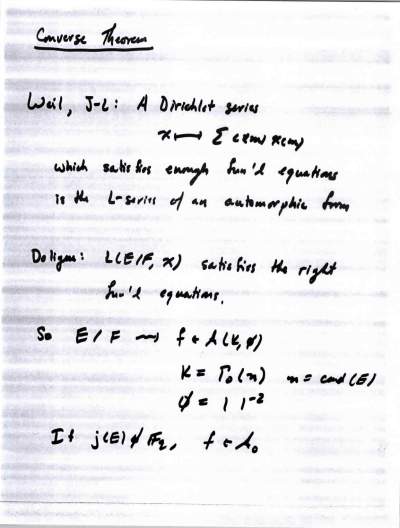 Converse Theorem
Weil, J-L: A Dirichlet series
χ ⟼ Σ c(m) χ(m)
which satisfies enough fun'l equations
is the L-series of an automorphic form
Deligne: L(E/F, χ) satisfies the right
fun'l equations.
So E/F ⟿ f ∈ A(K,φ)
K = Γ₀(n) n = cond(E)
φ = | |⁻²
If j(E) ∉ F_q, f ∈ A₀